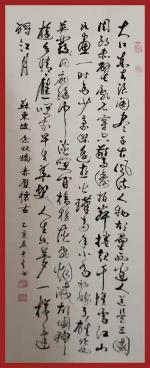 大江東去浪淘盡千古風流人物故壘西邊人道是三國
周郎赤壁亂石穿空驚濤拍岸捲起千堆雪江山
如畫一時多少豪傑遙想公瑾當年小喬初嫁了雄姿
英發羽扇綸巾談笑間檣櫓灰飛煙滅故國神
遊多情應笑我早生華髮人生如夢一樽還
酹江月
蘇東坡念奴嬌赤壁懷古